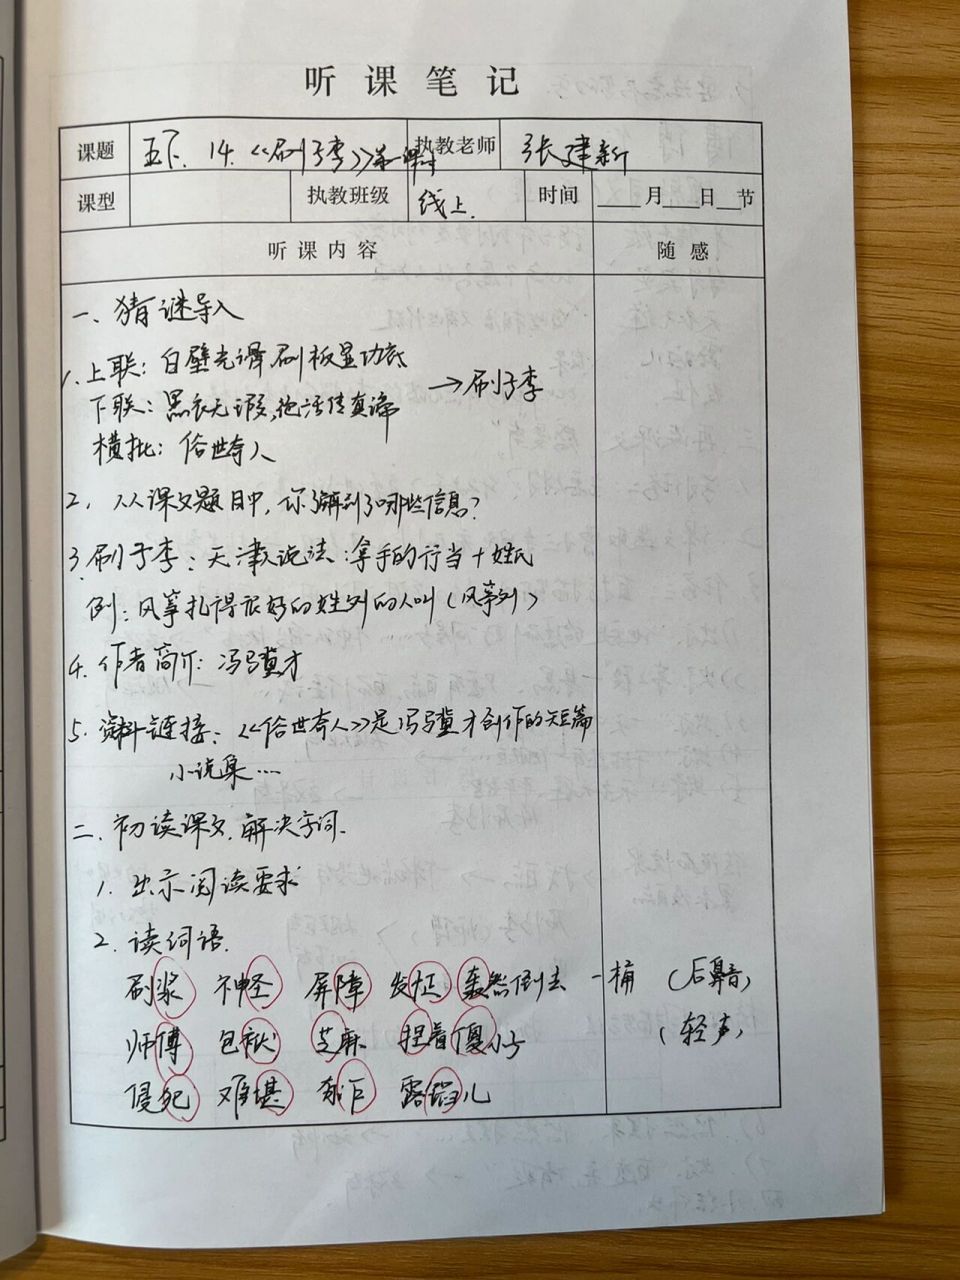 听课笔记
课题 五下. 14.《刷子李》第一课时 执教老师 张建新
课型 执教班级 线上. 时间 ____月____日__节
听课内容 随感
一、猜谜导入
1. 上联：白壁光滑,刷板显功底
下联：黑衣无瑕,绝活传真谛 →刷子李
横批：俗世奇人
2. 从课文题目中,你了解到了哪些信息?
3. 刷子李：天津人说法：拿手的行当+姓氏
例：风筝扎得很好的姓刘的人叫(风筝刘)
4. 作者简介：冯骥才
5. 资料链接：《俗世奇人》是冯骥才创作的短篇
小说集…
二、初读课文,解决字词.
1. 出示阅读要求
2. 读词语.
刷浆 神圣 屏障 发怔 轰然倒去 一桶 (后鼻音)
师傅 包袱 芝麻 担着 傻小子 (轻声)
难堪 露馅儿